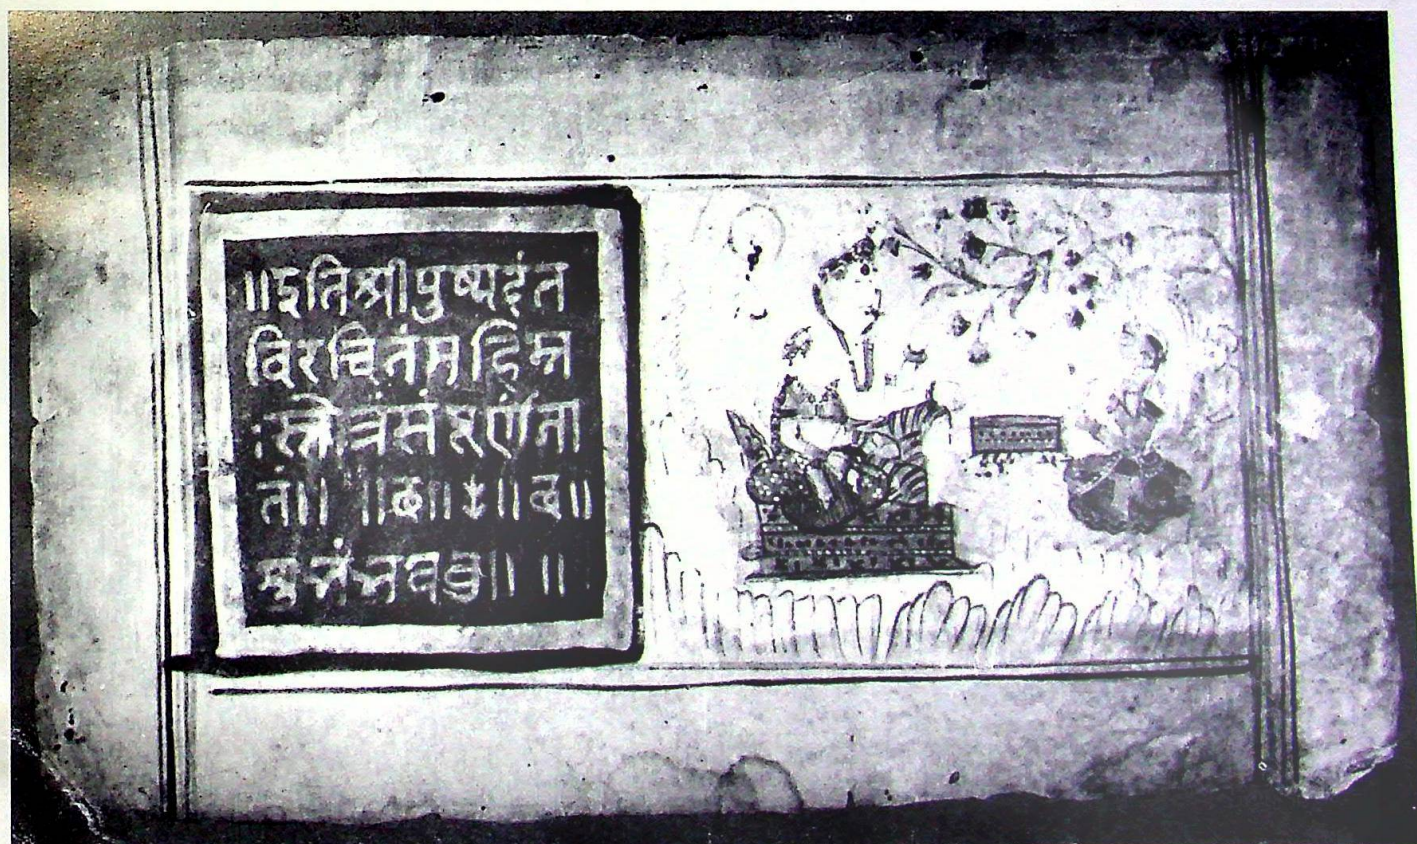 ॥इति श्रीपुष्पदंत
विरचितं महिम्न
ः स्तोत्रं संपूर्णता
तं॥ ॥छ॥ ॥छ॥
शुभंभवतु॥ ॥